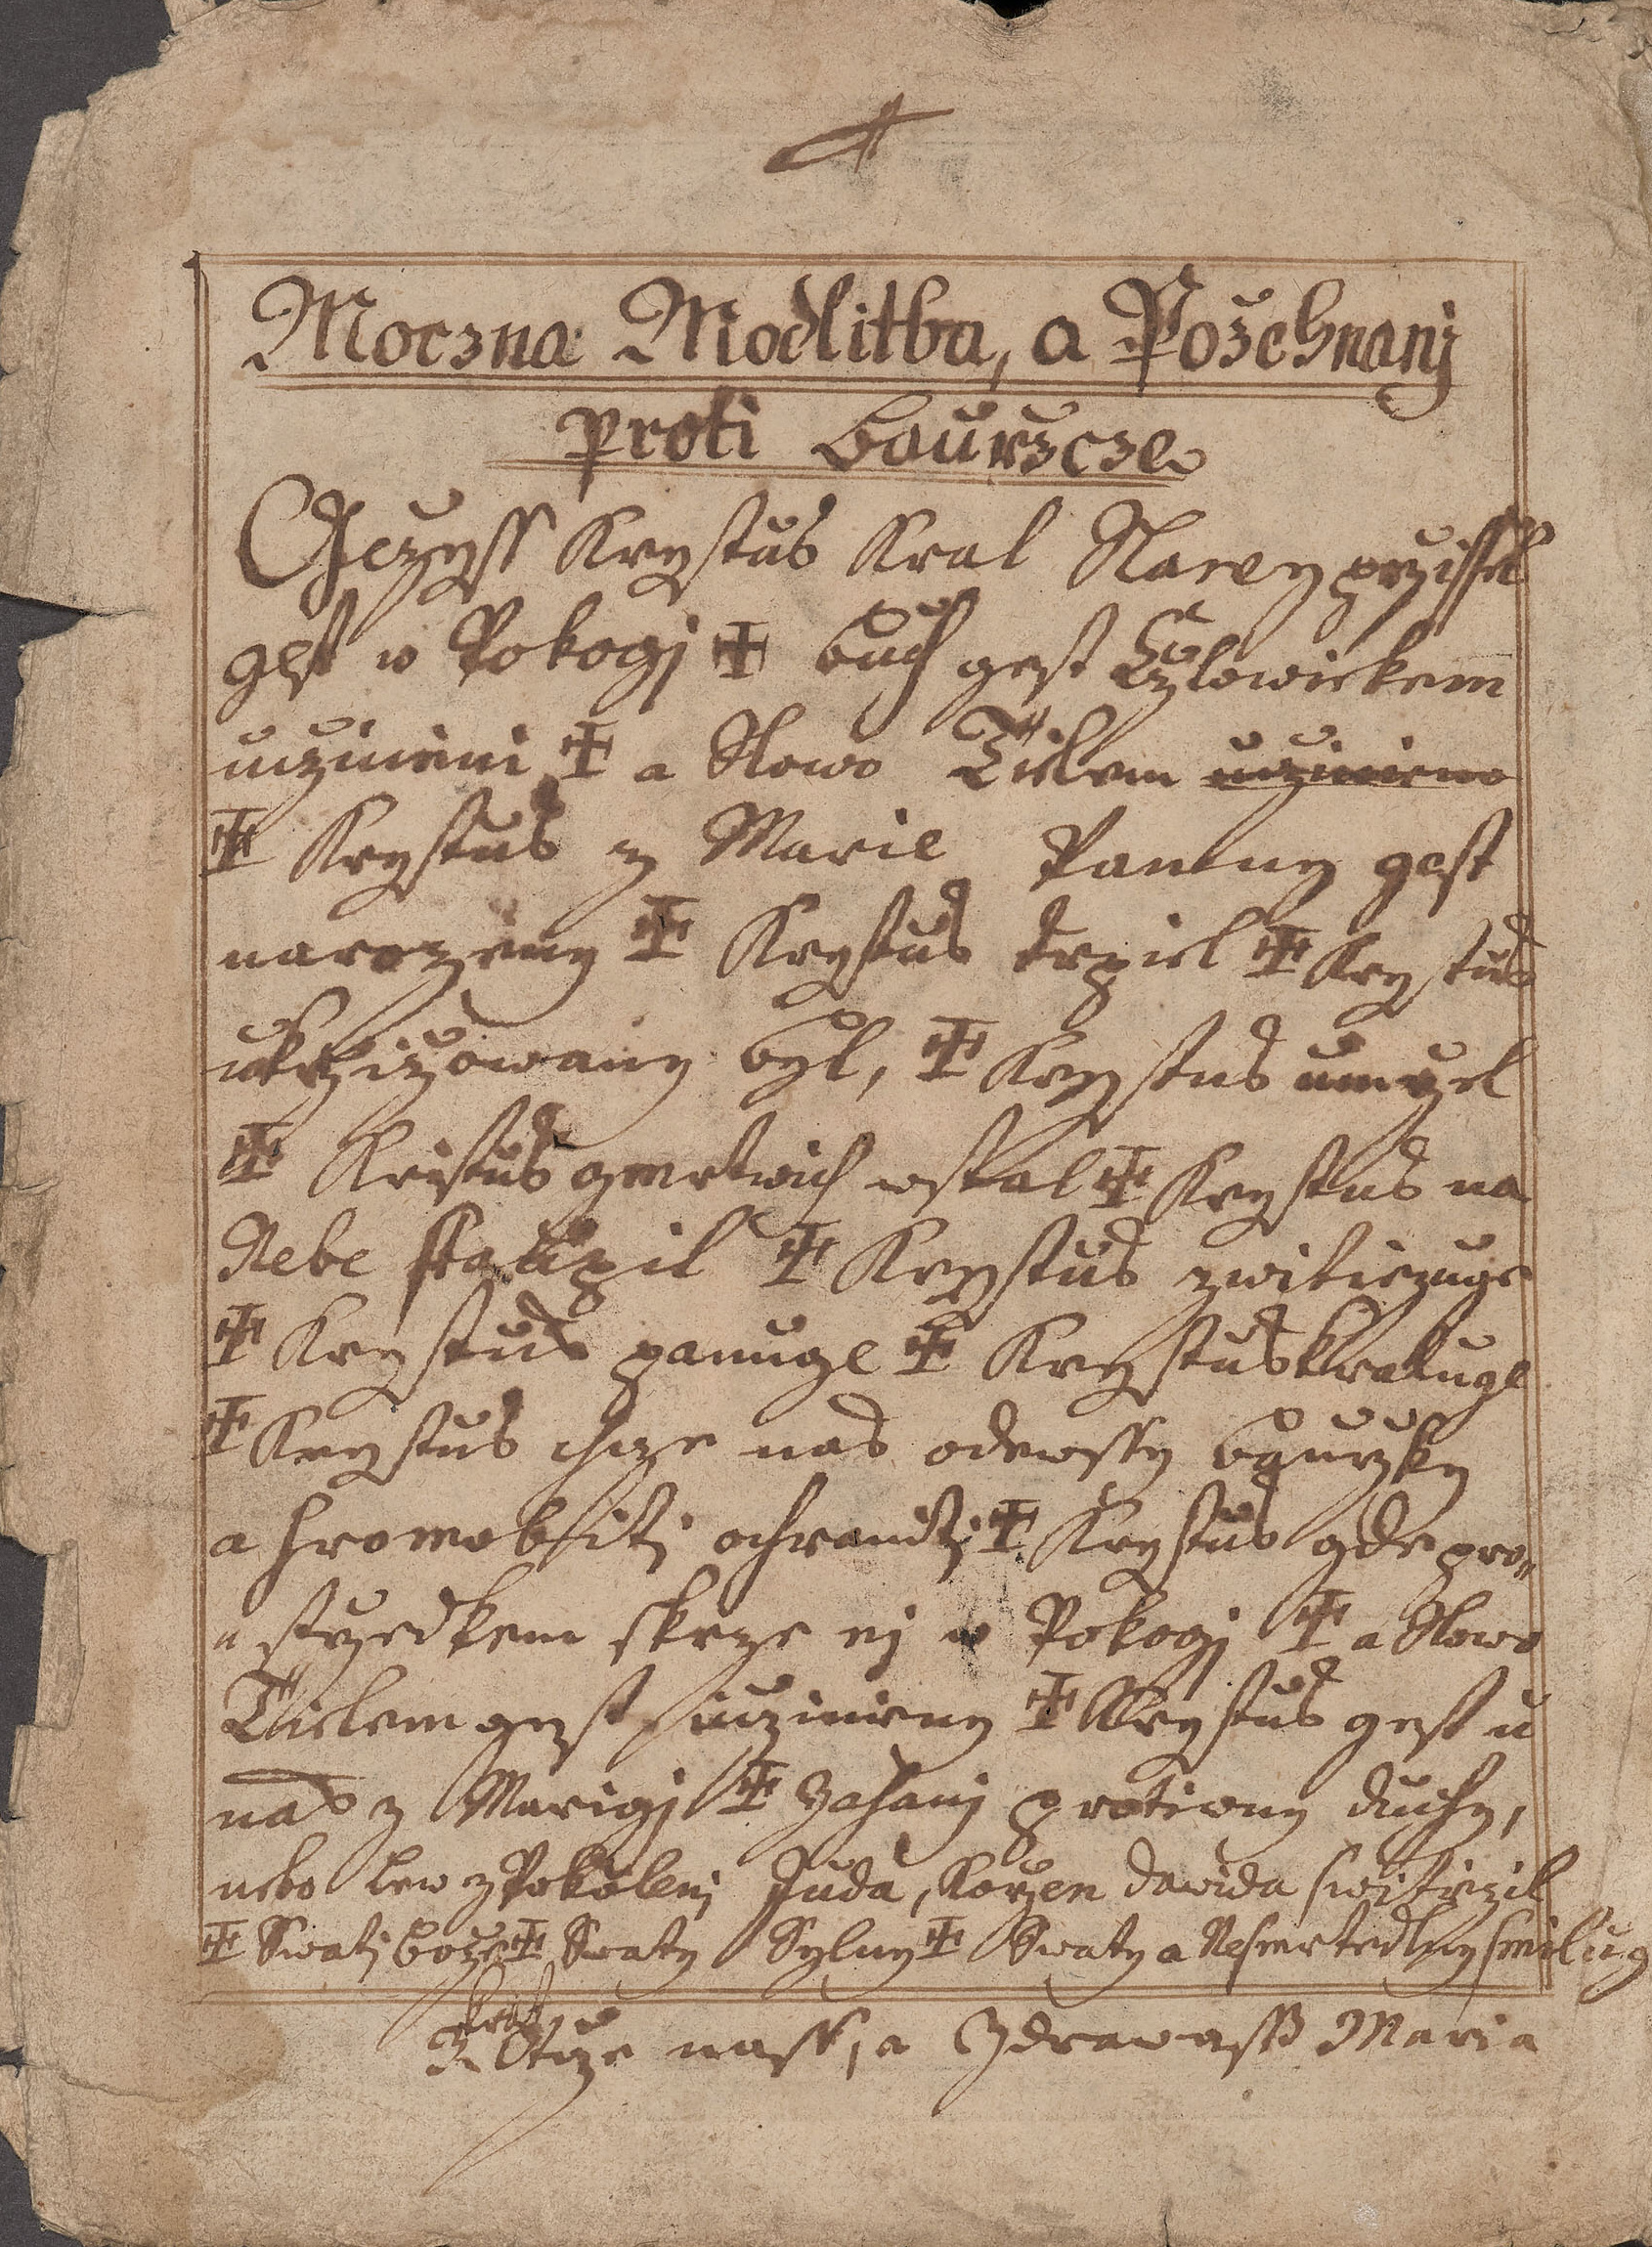 Moczna Modlitba, a Požehnanj
proti Bauržcze
Gežyss Krystus Kral Slawy przissel
gest w Pokogj ✠ buch gest Cžlowiekem
uczinieni ✠ a Slowo Tielem ucziniено
✠ Krystus z Marie Panny gest
narozeny ✠ Krystus trpiel ✠ Krystus
ukrzizowany byl, ✠ Krystus umrzel
✠ Kristus zmertwich wstal ✠ Krystus na
Nebe staupil ✠ Krystus zwitiezuge
✠ Krystus panuge ✠ Krystus kraluge
✠ Krystus chcze nas odewssy baurzky
a hromobitj ochranitj ✠ Krystus gde pro„
„strzedkem skrze nj w Pokogj ✠ a Slowo
Tielem gest ucziniеny ✠ Krystus gest u
nas z Marigj ✠ Zahanj protiwny duchy,
nebo lew z Pokolenj Juda, Korzen dawida switiezil
✠ Swatj bože ✠ Swaty Sylny ✠ Swaty a Nesmertedlny smilug
Otcze nass, a Zdrawass Maria